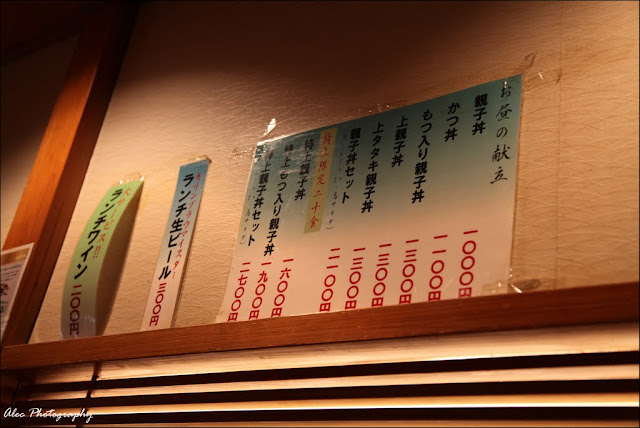 お昼の献立
親子丼 一〇〇〇円
かつ丼 一一〇〇円
もつ入り親子丼 一三〇〇円
上親子丼 一三〇〇円
上タタキ親子丼
親子丼セット
特上限定二十食
特上親子丼 一六〇〇円
特上もつ入り親子丼 一九〇〇円
特上親子丼セット 二七〇〇円
ランチ生ビール 三〇〇円
大サービス!!
ランチワイン 二〇〇円
Alec Photography